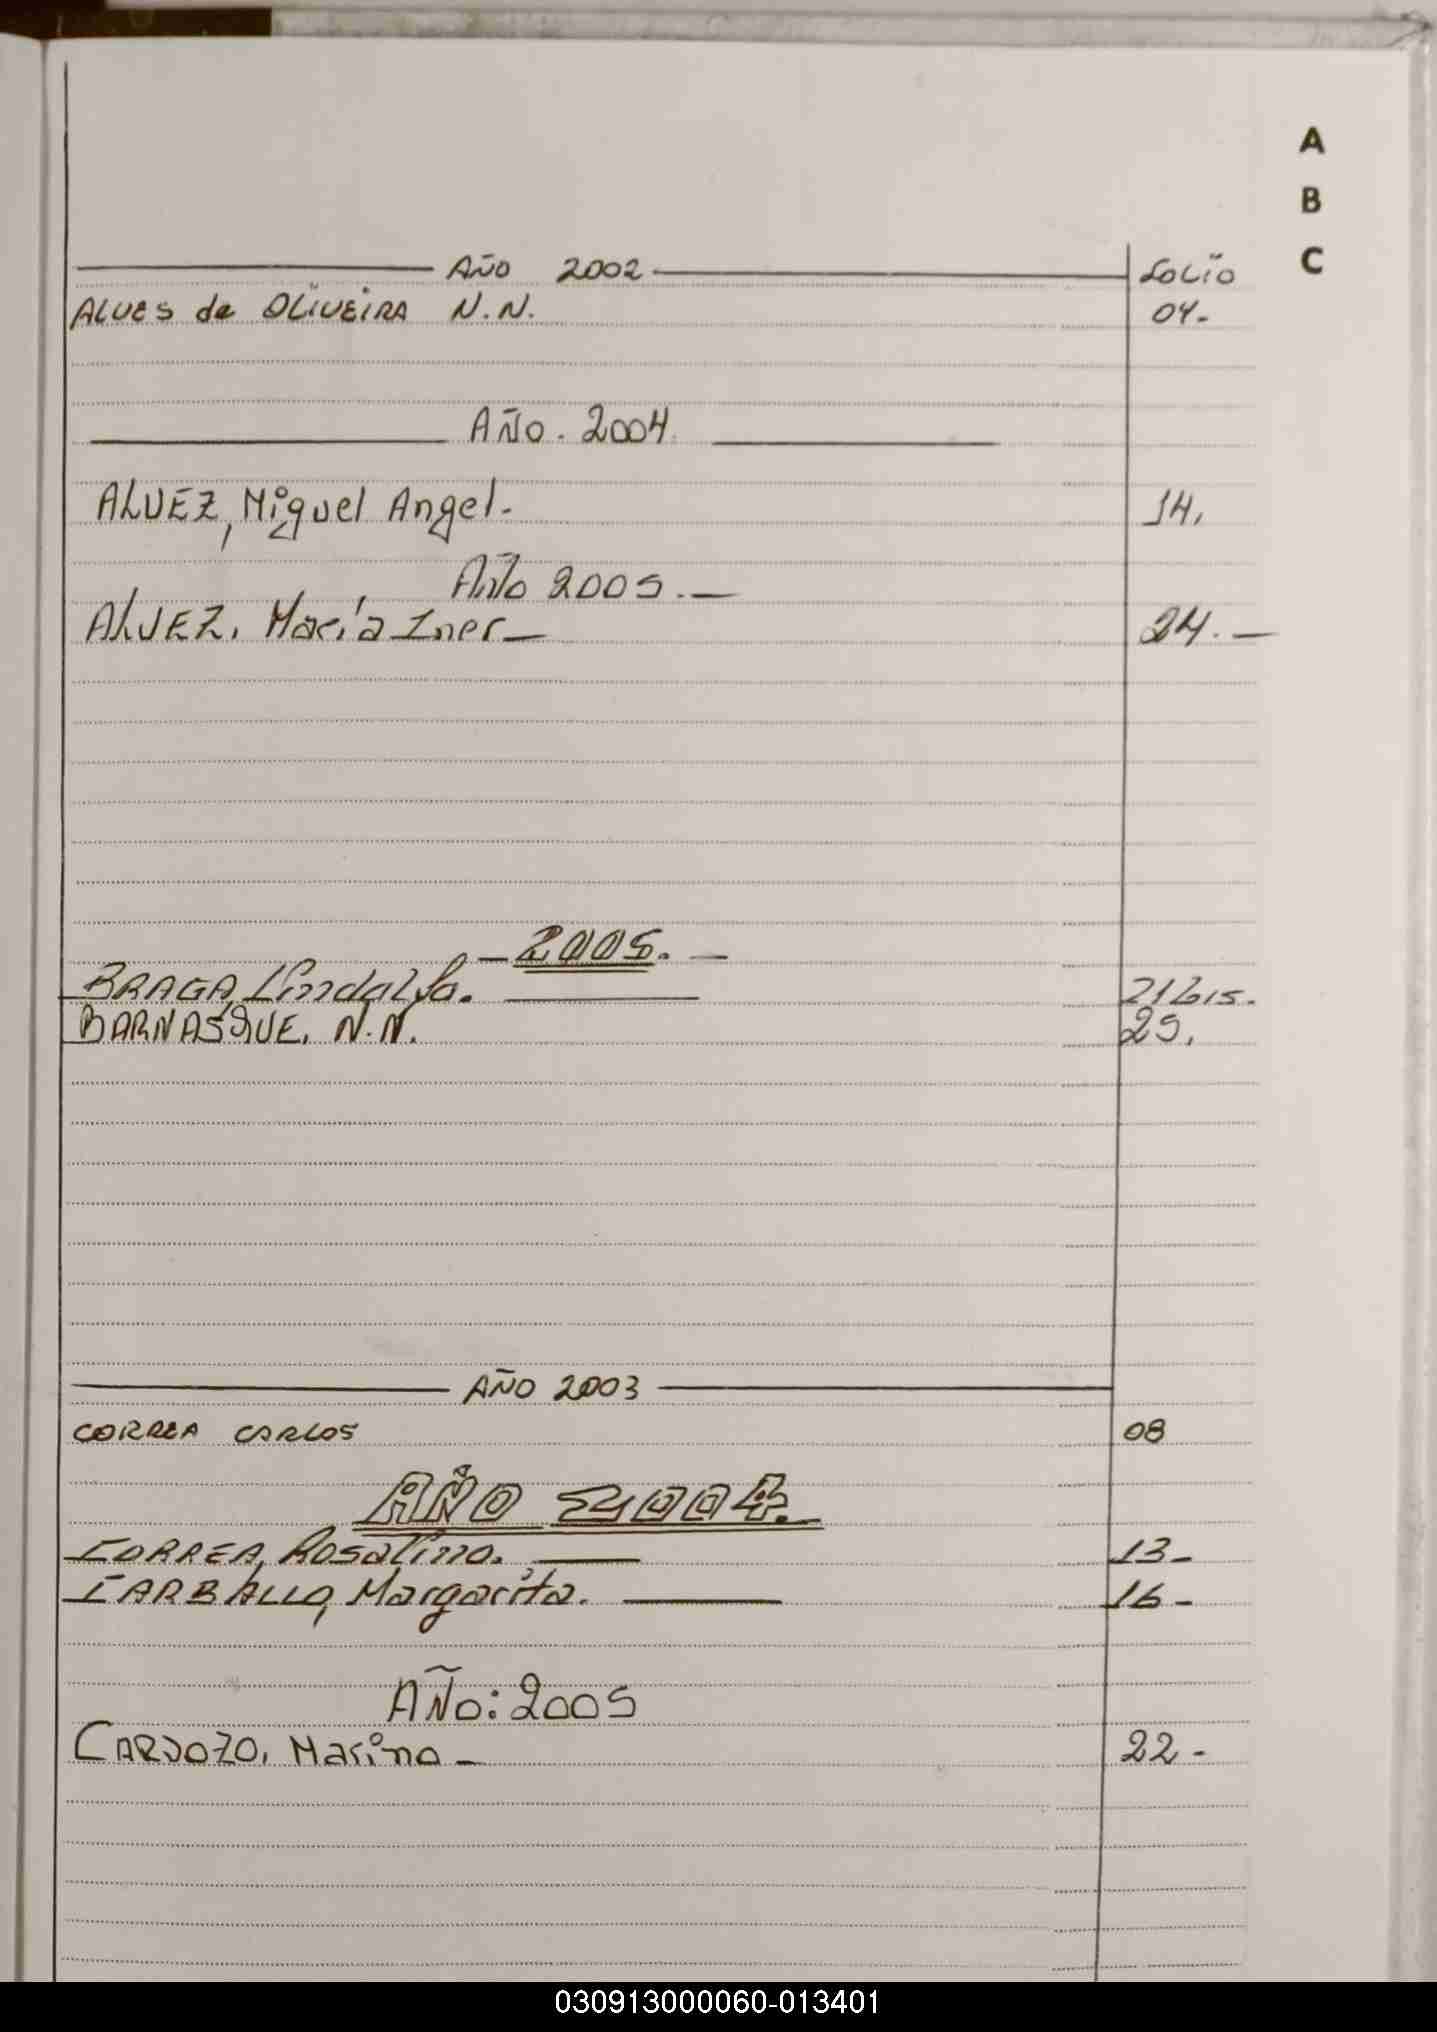 A
B
C
AÑO 2002 FOLIO
ALVES de OLIVEIRA N.N. 04-
AÑO. 2004
ALVEZ, Miguel Angel.- 14.
Año 2005.-
ALVEZ, María Ines- 24.-
-2005.-
BRAGA, Lindalva. 21 bis.
BARNASQUE, N.N. 25.
AÑO 2003
CORREA CARLOS 08
AÑO 2004.
CORREA, Rosalino. 13-
CARBALLO, Margarita. 16-
AÑO: 2005
CARDOZO, Marino- 22-
030913000060-013401